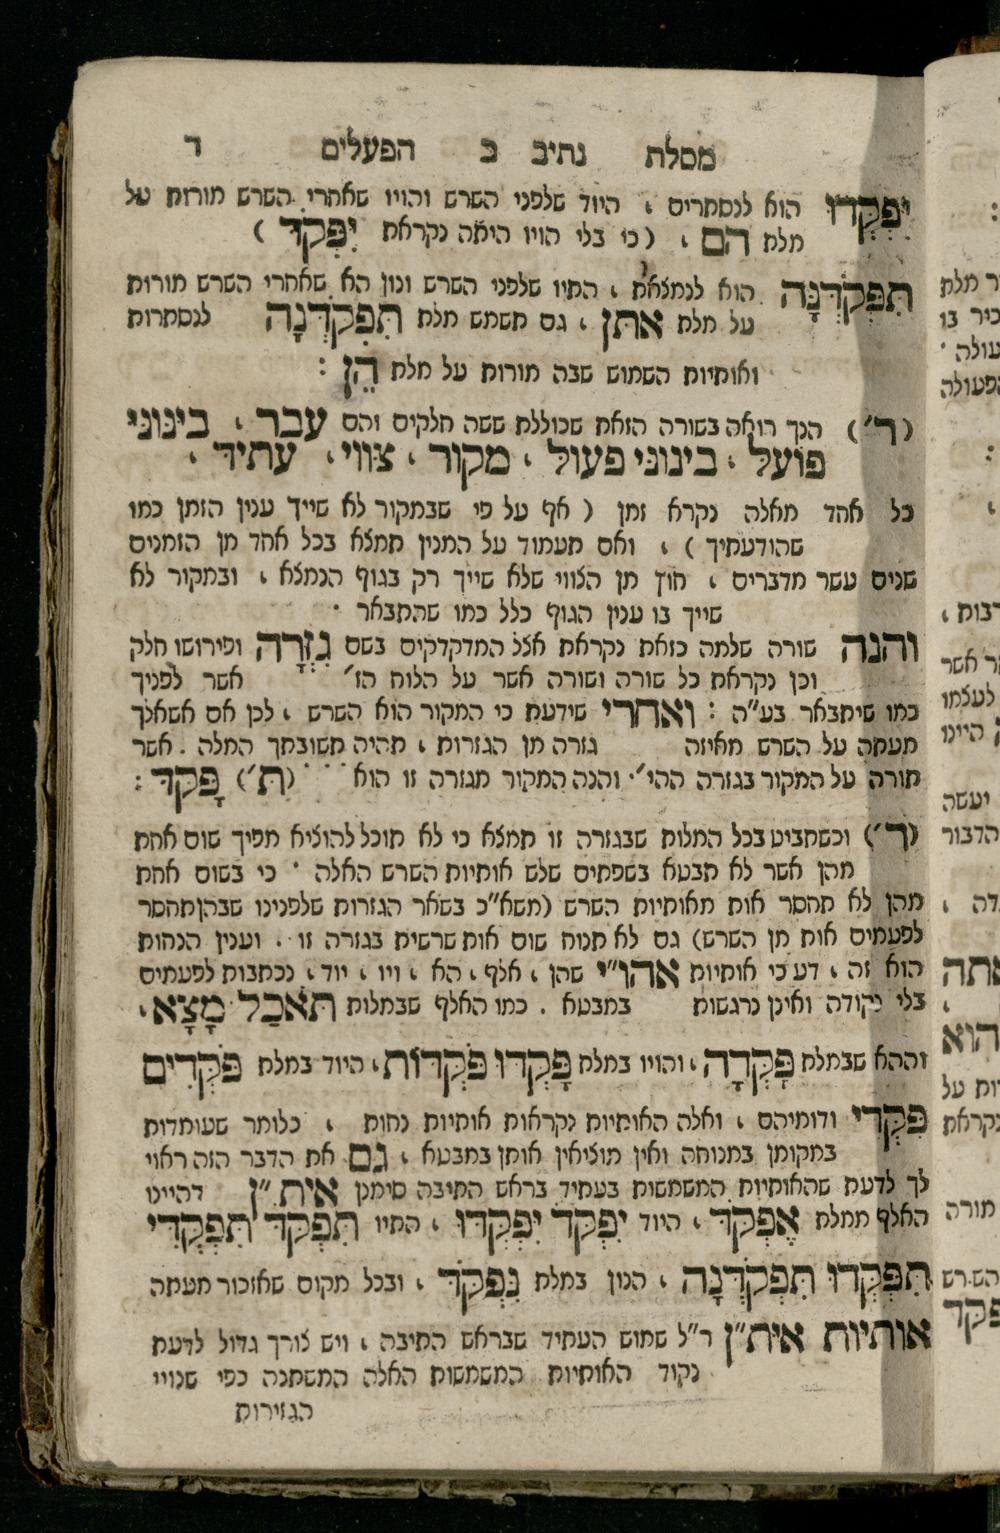 מסלת נתיב כ הפעלים ד
יִפְקְדוּ הוא לנסתרים ، היוד שלפני השרש והויו שאחרי השרש מורות על
מלת הם ، (כי בלי הויו היתה נקראת יִפְקֹד )
תִּפְקֹדְנָה הוא לנמצאת ، התיו שלפני השרש ונון הא שאחרי השרש מורות
על מלת אתן ، גם תשמש מלת תִּפְקֹדְנָה לנסתרות
ואותיות השמוש שבה מורות על מלת הֵן :
(ר') הנך רואה בשורה הזאת שכוללת ששה חלקים והם עבר ، בינוני
פועל ، בינוני פעול ، מקור ، צווי ، עתיד ،
כל אחד מאלה נקרא זמן ( אף על פי שבמקור לא שייך ענין הזמן כמו
שהודעתיך ) ، ואם תעמוד על המנין תמצא בכל אחד מן הזמנים
שנים עשר מדברים ، חוץ מן הצווי שלא שייך רק בגוף הנמצא ، ובמקור לא
שייך בו ענין הגוף כלל כמו שהתבאר ·
והנה שורה שלמה כזאת נקראת אצל המדקדקים בשם גִזְרָה ופירושו חלק
וכן נקראת כל שורה ושורה אשר על הלוח הז' אשר לפניך
כמו שיתבאר בע"ה : ואחרי שידעת כי המקור הוא השרש ، לכן אם אשאלך
מעתה על השרש מאיזה גזרה מן הגזרות ، תהיה תשובתך המלה . אשר
תורה על המקור בגזרה ההי' · והנה המקור מגזרה זו הוא (ת') פָּקֹד :
(ך') וכשתביט בכל המלות שבגזרה זו תמצא כי לא תוכל להוציא מפיך שום אחת
מהן אשר לא תבטא בשפתים שלש אותיות השרש האלה · כי בשום אחת
מהן לא תחסר אות מאותיות השרש (משא"כ בשאר הגזרות שלפנינו שבהן תחסר
לפעמים אות מן השרש) גם לא תנוח שום אות שרשית בגזרה זו . וענין הנחות
הוא זה ، דע כי אותיות אהו"י שהן ، אלף ، הא ، ויו ، יוד ، נכתבות לפעמים
בלי נקודה ואינן נרגשות במבטא . כמו האלף שבמלות תֹּאכַל מָצָא ،
וההא שבמלת פָּקְדָה ، והויו במלת פָּקְדוּ פֹּקְדוֹת ، היוד במלת פֹּקְדִים
פִּקְדִי ודומיהם ، ואלה האותיות נקראות אותיות נחות ، כלומר שעומדות
במקומן במנוחה ואין מוציאין אותן במבטא ، גם את הדבר הזה ראוי
לך לדעת שהאותיות המשמשות בעתיד בראש התיבה סימנן אית"ן דהיינו
האלף ממלת אֶפְקֹד ، היוד יִפְקֹד יִפְקְדוּ ، התיו תִּפְקֹד תִּפְקְדִי
תִּפְקְדוּ תִּפְקֹדְנָה ، הנון במלת נִפְקֹד ، ובכל מקום שאזכור מעתה
אותיות אית"ן ר"ל שמוש העתיד שבראש התיבה ، ויש צורך גדול לדעת
נקוד האותיות המשמשות האלה המשתנה כפי שנויי
הגזירות